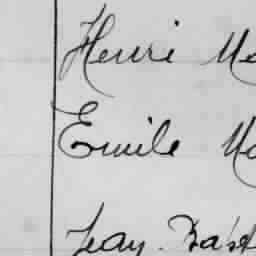 Henri
Emile
Jean Bapt